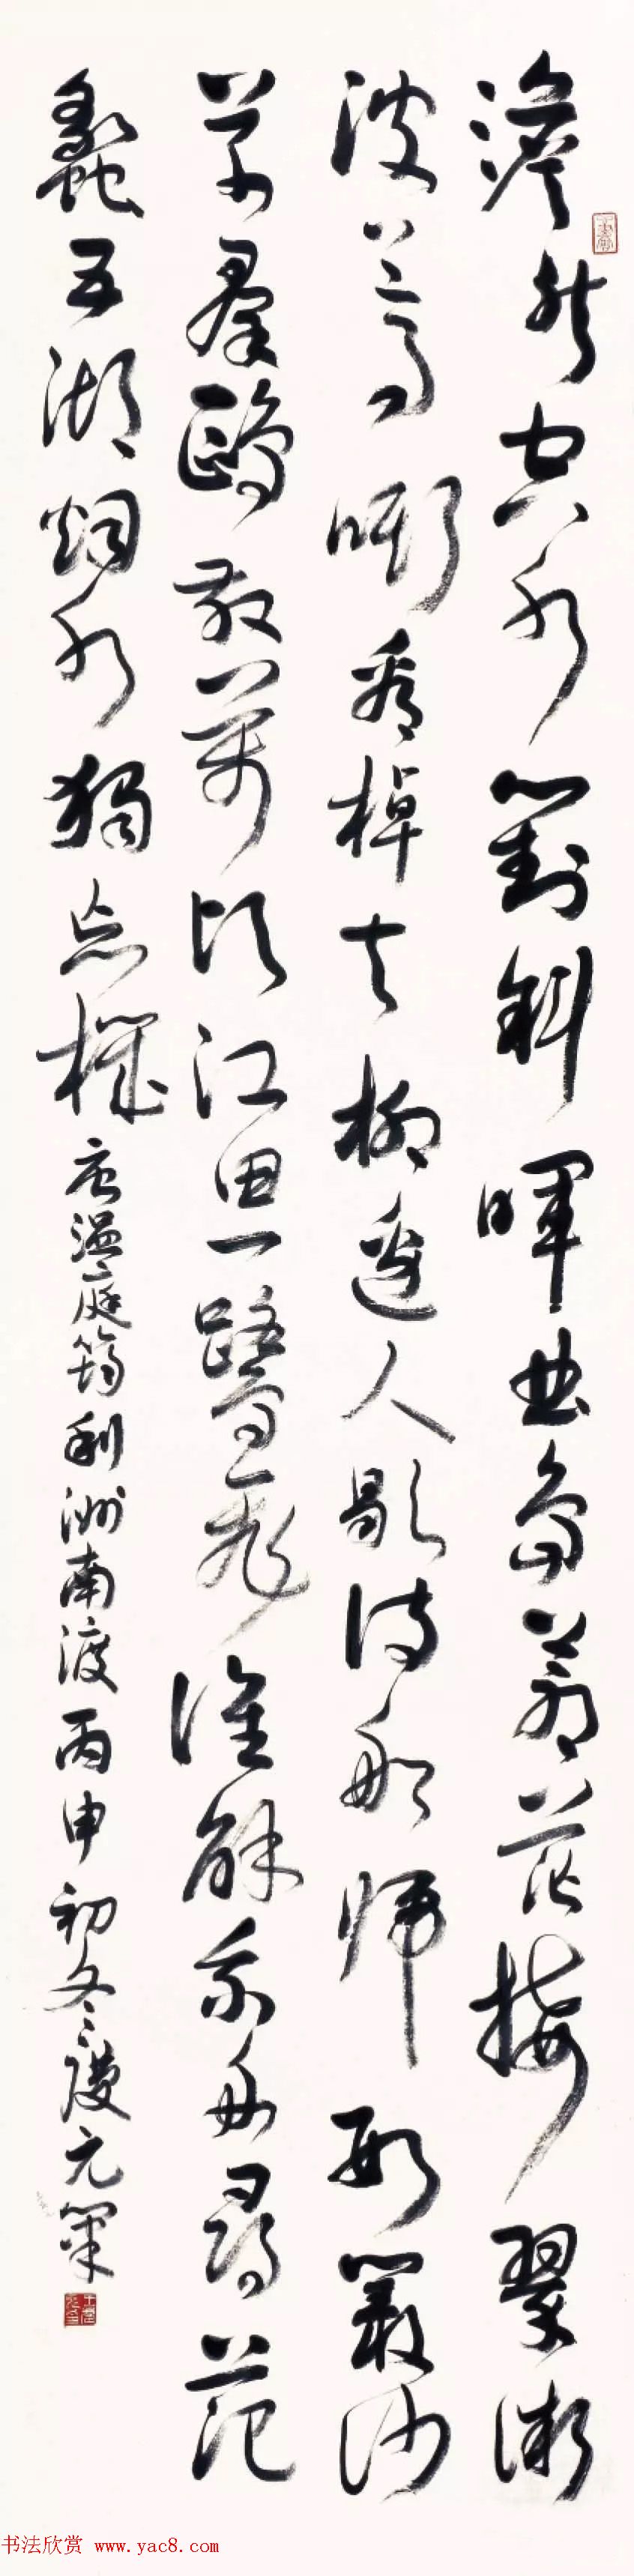 澹然空水對斜暉曲島蒼茫接翠微
波上馬嘶看棹去柳邊人歇待船歸數叢沙
草羣鷗散萬頃江田一鷺飛誰解乘舟尋范
蠡五湖烟水獨忘機 唐溫庭筠利洲南渡丙申初冬元筆
书法欣赏 www.yac8.com